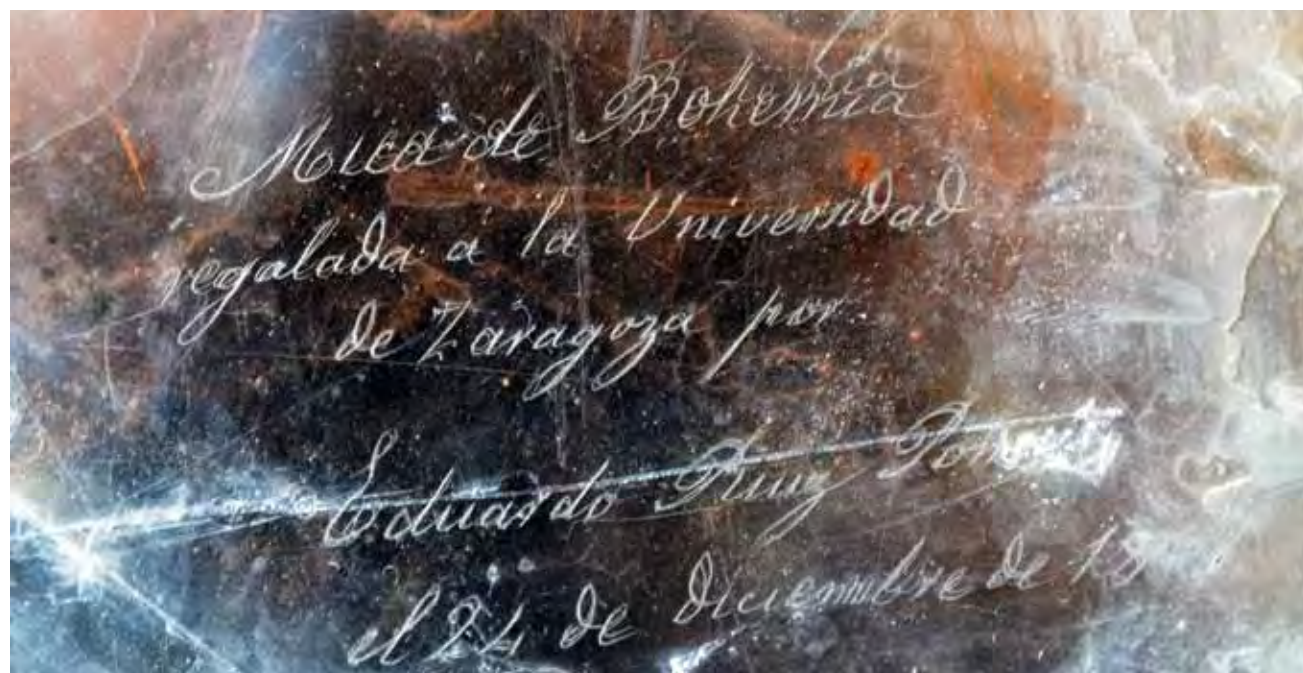 Mica de Bohemia
regalada á la Universidad
de Zaragoza por
Eduardo Ruiz
el 24 de Diciembre de